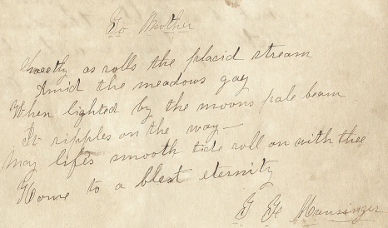 To Brother
Sweetly as rolls the placid stream
Amid the meadows gay
When lighted by the moons pale beam
It ripples on the way—
May lifes smooth tide roll on with thee
Home to a blest eternity
Hunsinger